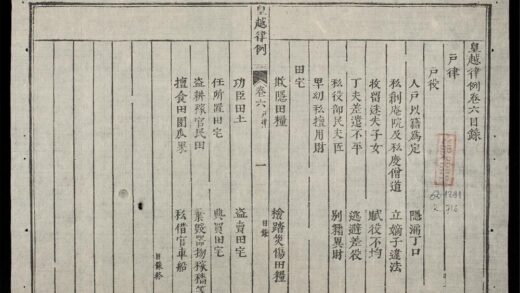 皇越律例卷六目錄
戶律
戶役
人戶以籍爲定 隱漏丁口
私創庵院及私度僧道 立嫡子違法
收留迷失子女 賦役不均
丁夫差遣不平 逃避差役
私役部民夫匠 別籍異財
卑幼私擅用財
田宅
欺隱田糧 檢踏災傷田糧
皇越律例 卷六 戶律 一 目錄
功臣田土 盜賣田宅
任所置田宅 典買田宅
盜耕種官民田 棄毀器物稼穡等
擅食田園瓜果 私借官車船
目錄終